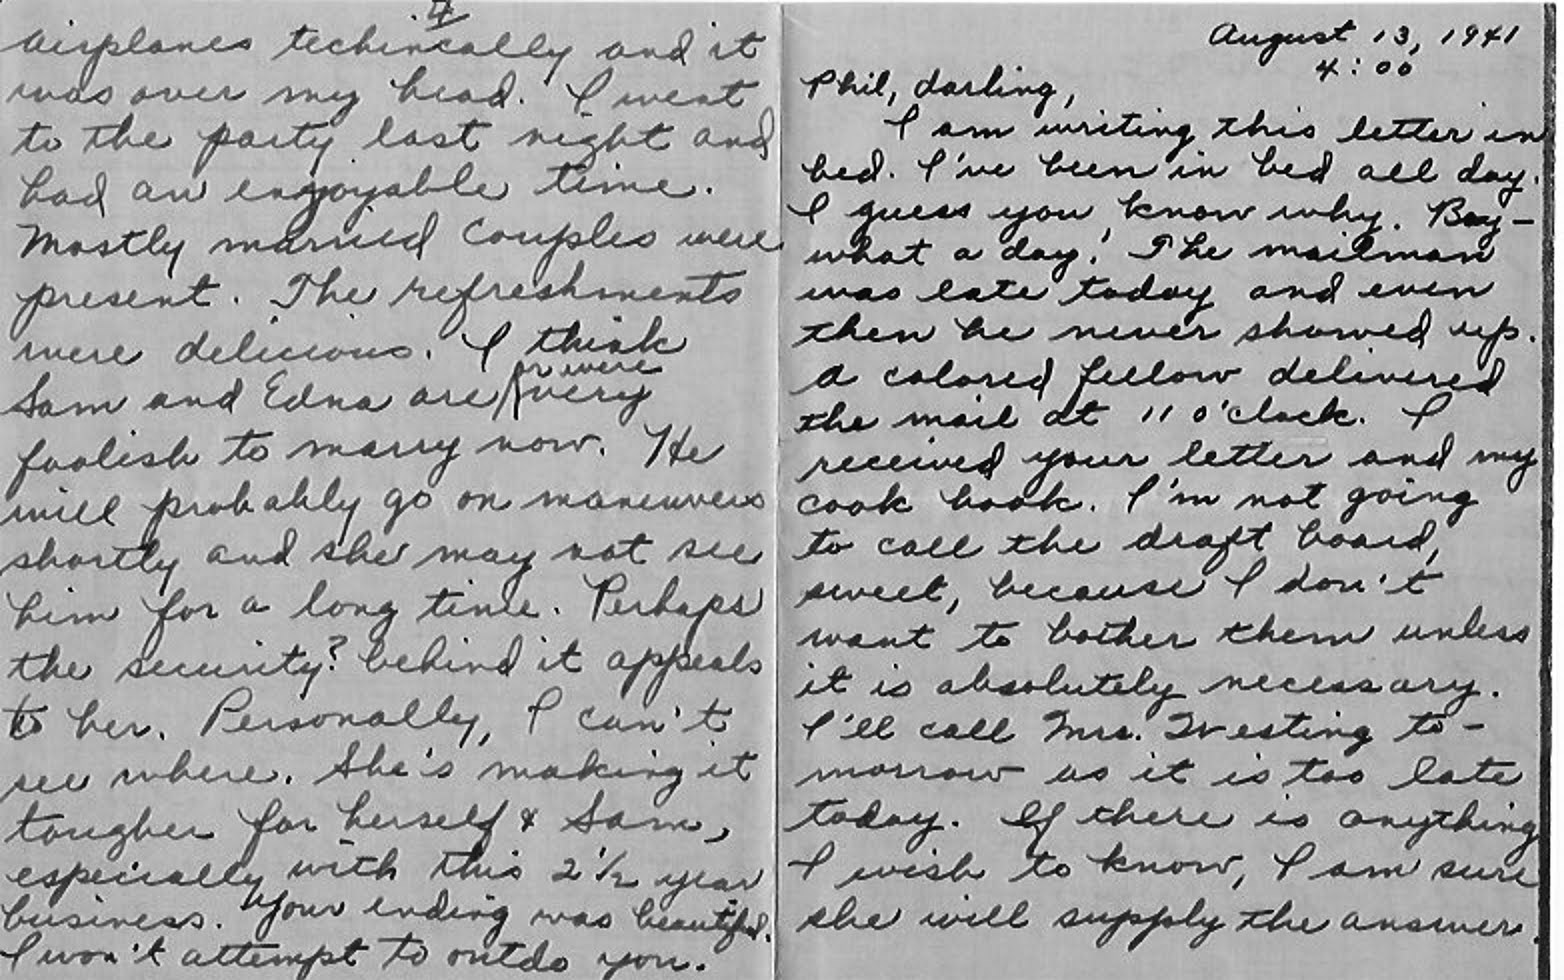 4
airplanes techincally and it
was over my head. I went
to the party last night and
had an enjoyable time.
Mostly married couples were
present. The refreshments
were delicious. I think
or were
Sam and Edna are very
foolish to marry now. He
will probably go on maneuvers
shortly and she may not see
him for a long time. Perhaps
the security? behind it appeals
to her. Personally, I can't
see where. She's making it
tougher for herself & Sam,
especially with this 2 1/2 year
business. Your ending was beautiful.
I won't attempt to outdo you.
August 13, 1941
4:00
Phil, darling,
I am writing this letter in
bed. I've been in bed all day.
I guess you know why. Boy-
what a day! The mailman
was late today and even
then he never showed up.
A colored fellow delivered
the mail at 11 o'clock. I
received your letter and my
cook book. I'm not going
to call the draft board,
sweet, because I don't
want to bother them unless
it is absolutely necessary.
I'll call Mrs. Westing to-
morrow as it is too late
today. If there is anything
I wish to know, I am sure
she will supply the answer.